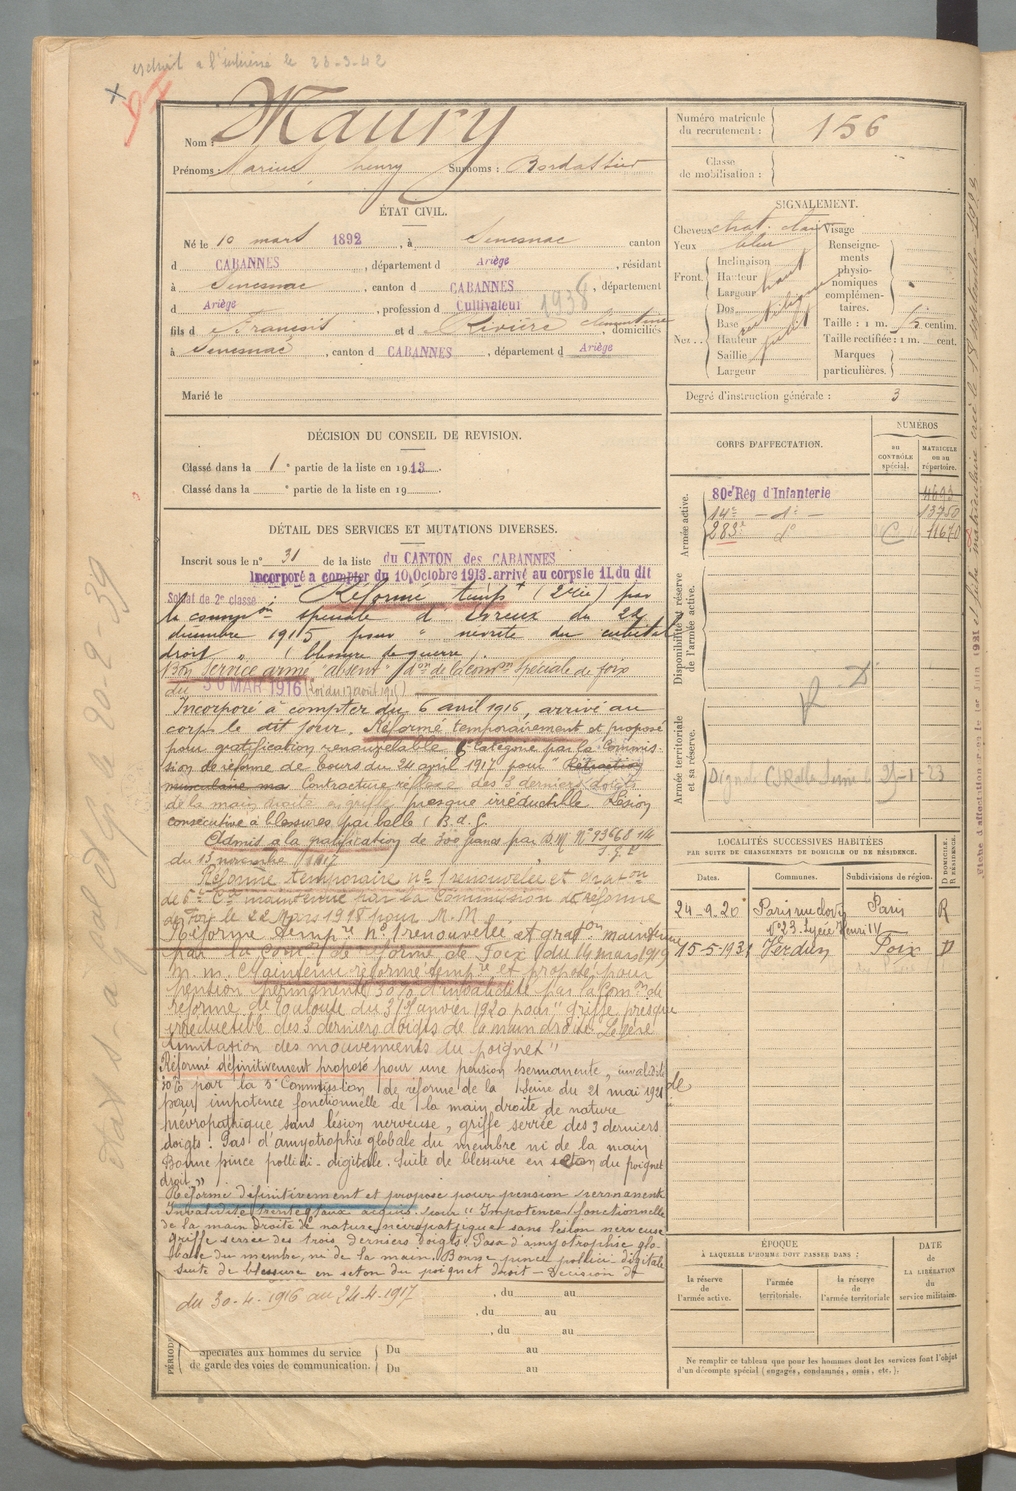 extrait a l'intéressé le 28-3-42
Nom : Maury
Prénoms : Marius henry Surnoms : Bordassier
Numéro matricule du recrutement : 156
Classe de mobilisation :
ÉTAT CIVIL.
Né le 10 mars 1892, à Senesnac canton
d CABANNES, département d Ariège, résidant
à Senesnac, canton d CABANNES, département
d Ariège, profession d Cultivateur 1938
fils d François et d Rivière Clementine, domiciliés
à Senesnac, canton d CABANNES, département d Ariège
Marié le
SIGNALEMENT.
Cheveux chat. clair
Yeux bleu
Front. Inclinaison
Hauteur haut
Largeur
Nez.. Dos
Base
Hauteur
Saillie petit
Largeur
Visage
Renseignements physionomiques complémentaires.
Taille : 1 m. centim.
Taille rectifiée : 1 m. cent.
Marques particulières.
Degré d'instruction générale : 3
DÉCISION DU CONSEIL DE REVISION.
Classé dans la 1e partie de la liste en 1913.
Classé dans la e partie de la liste en 19
DÉTAIL DES SERVICES ET MUTATIONS DIVERSES.
Inscrit sous le n° 31 de la liste du CANTON des CABANNES
Incorporé a compter du 10 Octobre 1913. arrivé au corps le 11. du dit
Soldat de 2e classe : Réformé temp (2 ) par
la common spéciale d'Evreux du 22
décembre 1915 pour " névrite du cubital
droit " ( blessure de guerre ).
Bon Service armé "absent" don de la comon Spéciale de foix
du 30 MAR 1916 (Loi du 17 août 1915)
Incorporé à compter du 6 avril 1916, arrivé au
corps le dit jour. Réformé temporairement et proposé
pour gratification renouvelable 6e Catégorie par la Commis-
sion de réforme de Tours du 24 avril 1917 pour " Rétraction
musculaire ma Contracture réflexe des 3 derniers doigts
de la main droite en griffe presque irréductible. Lésion
consécutive à blessures par balle (B. d. G.
Admis a la gratification de 300 francs par D.M. N° 93668 14
du 13 novembre 1917
Réforme temporaire n° 1 renouvelée et graton
de 6e Cie maintenue par la Commission de réforme
de Foix le 22 Mars 1918 pour M. M
Réforme tempre n° 1 renouvelée et graton maintenue
par la Comon de réforme de Foix du 14 mars 1919
m. m. Maintenu réforme tempre et proposé pour
pension permanente 30% d'invalidité par la Comon de
réforme de Toulouse du 31 janvier 1920 pour " griffe presque
irréductible des 3 derniers doigts de la main droite Légère
limitation des mouvements du poignet"
Réformé définitivement proposé pour une pension permanente, invalidité
30% par la 3e Commission de réforme de la Seine du 21 mai 1921
pour " impotence fonctionnelle de la main droite de nature
névropathique sans lésion nerveuse, griffe serrée des 3 derniers
doigts. Pas d'amyotrophie globale du membre ni de la main
Bonne pince pollici-digitale. Suite de blessure en séton du poignet
droit "
Réformé définitivement et proposé pour pension permanente
Invalidité trente % taux acquis. Pour "Impotence fonctionnelle
de la main droite de nature neuropathique et sans lésion nerveuse
griffe serrée des trois Derniers Doigts. Pas d'amyotrophie glo-
bale du membre, ni de la main. Bonne pince pollici-digitale
Suite de blessure en seton du poignet droit - Décision de
du 30-4-1916 au 24-4-1917
, du au
, du au
, du au
PÉRIODES
Spéciales aux hommes du service de garde des voies de communication. Du au
Du au
CORPS D'AFFECTATION.
NUMÉROS
au CONTRÔLE spécial.
MATRICULE ou au répertoire.
Armée active.
80e Rég d'Infanterie 4693
14e - de - 13750
283e do C 11670
Disponibilité et réserve de l'armée active.
R - D
Armée territoriale et sa réserve.
LOCALITÉS SUCCESSIVES HABITÉES
PAR SUITE DE CHANGEMENTS DE DOMICILE OU DE RÉSIDENCE.
Dates. Communes. Subdivisions de région. D DOMICILE. R RÉSIDENCE.
24-9-20 Paris rue Clovis Paris R
N° 23. Lycée Henri IV
15-5-1931 Verdun Foix D
ÉPOQUE
À LAQUELLE L'HOMME DOIT PASSER DANS :
la réserve de l'armée active.
l'armée territoriale.
la réserve de l'armée territoriale
DATE de LA LIBÉRATION du service militaire.
Ne remplir ce tableau que pour les hommes dont les services font l'objet
d'un décompte spécial (engagés, condamnés, omis, etc.).